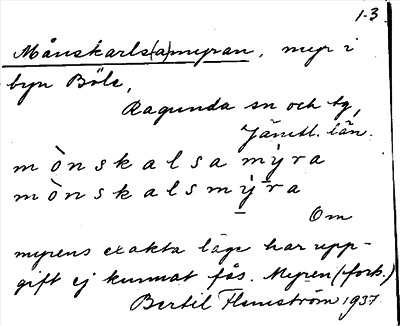 1-3.
Månskarls(a)myran, myr i
byn Böle,
Ragunda sn och tg,
Jämtl. län.
mònskalsamýra
mònskalsmýra
Om
myrens exakta läge har upp-
gift ej kunnat fås. Myren (forts.)
Bertil Flemström 1937